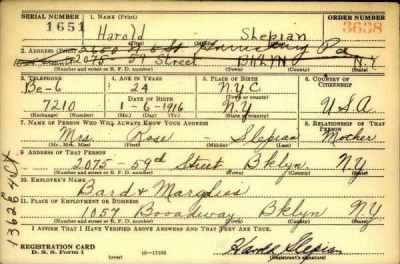 SERIAL NUMBER 1. NAME (Print) ORDER NUMBER
1651 Harold Slepian 3638
2. ADDRESS (Print)
2075 59 Street BKLYN N.Y.
(Number and street or R. F. D. number) (Town) (County) (State)
3. TELEPHONE 4. AGE IN YEARS 5. PLACE OF BIRTH 6. COUNTRY OF CITIZENSHIP
Be-6 24 N.Y.C
7210 1-6-1916 N.Y USA
(Exchange) (Number) (Mo.) (Day) (Yr.) (State or country)
7. NAME OF PERSON WHO WILL ALWAYS KNOW YOUR ADDRESS 8. RELATIONSHIP OF THAT PERSON
Mrs. Rose Slepian Mother
(Mr., Mrs., Miss) (First) (Middle) (Last)
9. ADDRESS OF THAT PERSON
2075-59th Street Bklyn. NY
(Number and street or R. F. D. number) (Town) (County) (State)
10. EMPLOYER'S NAME
Bard & Margolies
11. PLACE OF EMPLOYMENT OR BUSINESS
1057 Broadway Bklyn NY
(Number and street or R. F. D. number) (Town) (County) (State)
I AFFIRM THAT I HAVE VERIFIED ABOVE ANSWERS AND THAT THEY ARE TRUE.
REGISTRATION CARD
D. S. S. Form 1 (over) 16-17105 Harold Slepian
(Registrant's signature)